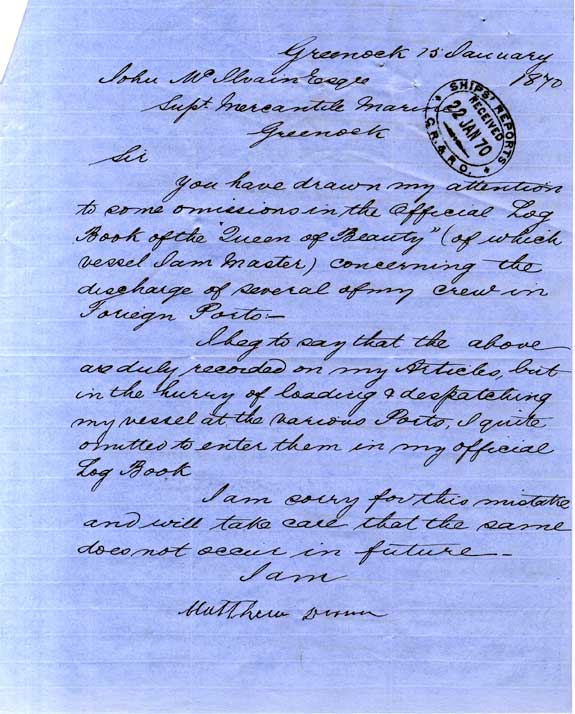 Greenock 15 January
1870
John McIlvain Esqre
Supt. Mercantile Marine
Greenock
SHIPS' REPORTS
RECEIVED
22 JAN 70
G.R. & R.O.
Sir
You have drawn my attention
to some omissions in the Official Log
Book of the "Queen of Beauty" (of which
vessel I am Master) concerning the
discharge of several of my crew in
Foreign Ports:—
I beg to say that the above
are duly recorded on my Articles, but
in the hurry of loading & despatching
my vessel at the various Ports, I quite
omitted to enter them in my official
Log Book
I am sorry for this mistake
and will take care that the same
does not occur in future —
I am
Matthew